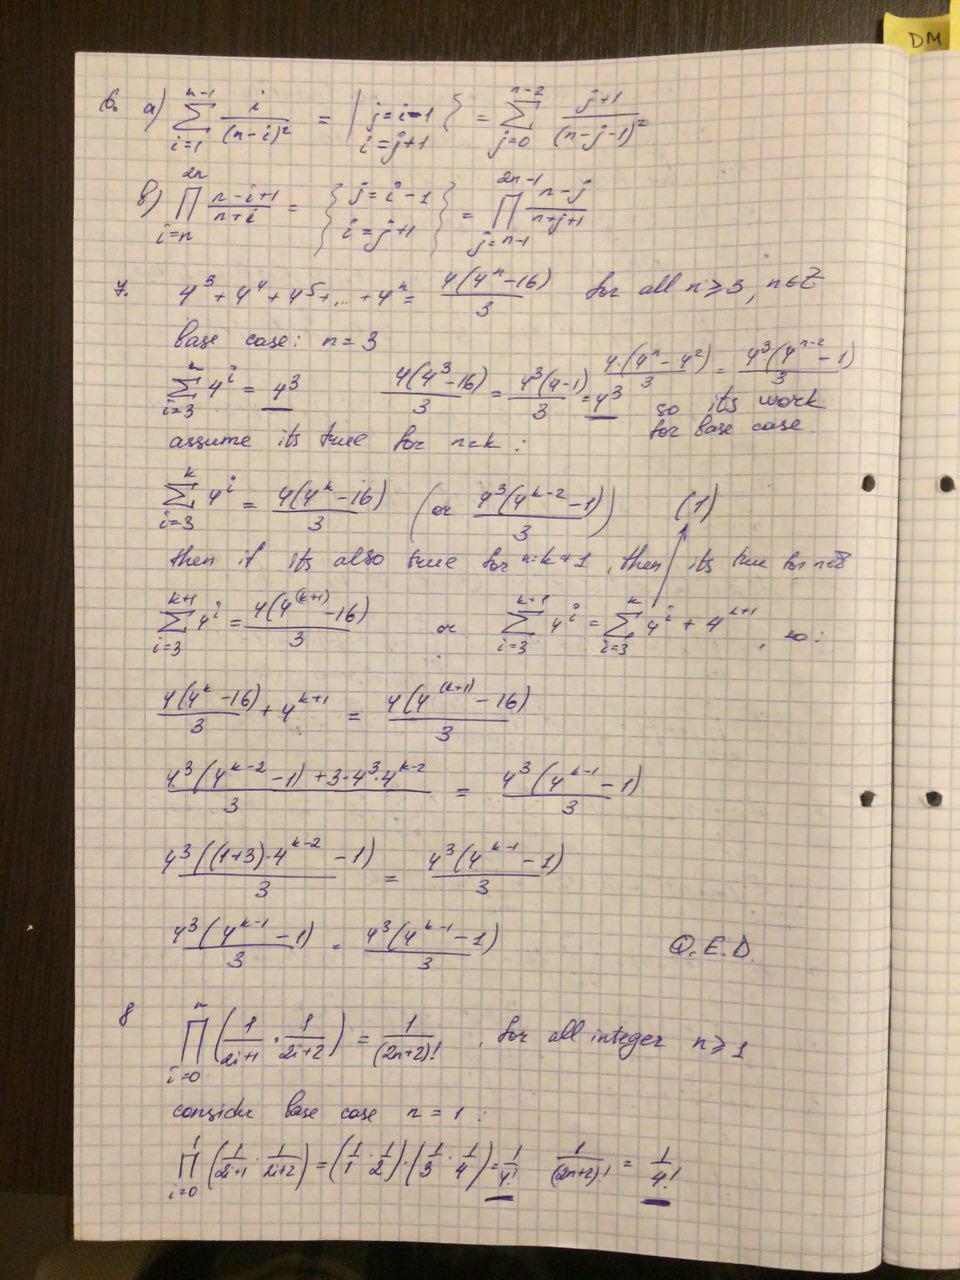 DM
6. a) \sum_{i=1}^{n-1} \frac{i}{(n-i)^2} = | j=i-1 i=j+1 } = \sum_{j=0}^{n-2} \frac{j+1}{(n-j-1)^2}
b) \prod_{i=n}^{2n} \frac{n-i+1}{n+i} = { j=i-1 i=j+1 } = \prod_{j=n-1}^{2n-1} \frac{n-j}{n+j+1}
7. 4^3 + 4^4 + 4^5 + ... + 4^n = \frac{4(4^n-16)}{3} for all n ≥ 3, n ∈ Z
base case: n = 3
\sum_{i=3}^{n} 4^i = 4^3 \frac{4(4^3-16)}{3} = \frac{4^3(4-1)}{3} = 4^3 \frac{4·(4^n-4^2)}{3} = \frac{4^3(4^{n-2}-1)}{3}
so its work
for base case.
assume its true for n=k:
\sum_{i=3}^{k} 4^i = \frac{4(4^k-16)}{3} (or \frac{4^3(4^{k-2}-1)}{3}) (1)
then if its also true for n=k+1, then its true for
\sum_{i=3}^{k+1} 4^i = \frac{4(4^{(k+1)}-16)}{3} or \sum_{i=3}^{k+1} 4^i = \sum_{i=3}^{k} 4^i + 4^{k+1}, so:
\frac{4(4^k-16)}{3} + 4^{k+1} = \frac{4(4^{(k+1)}-16)}{3}
\frac{4^3(4^{k-2}-1)+3·4^3·4^{k-2}}{3} = \frac{4^3(4^{k-1}-1)}{3}
\frac{4^3((1+3)·4^{k-2}-1)}{3} = \frac{4^3(4^{k-1}-1)}{3}
\frac{4^3(4^{k-1}-1)}{3} = \frac{4^3(4^{k-1}-1)}{3} Q.E.D.
8 \prod_{i=0}^{n} (\frac{1}{2i+1} · \frac{1}{2i+2}) = \frac{1}{(2n+2)!}, for all integer n ≥ 1
consider base case n = 1:
\prod_{i=0}^{1} (\frac{1}{2i+1} · \frac{1}{2i+2}) = (\frac{1}{1} · \frac{1}{2})·(\frac{1}{3} · \frac{1}{4}) = \frac{1}{4!} \frac{1}{(2n+2)!} = \frac{1}{4!}